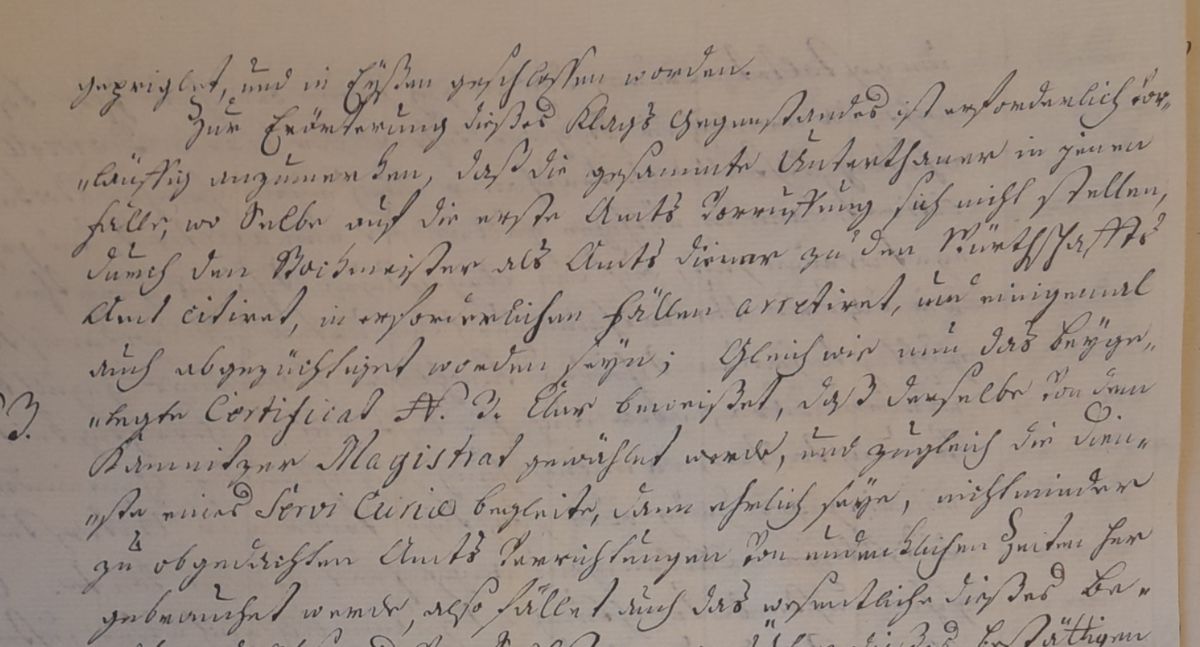 geprüglet, und in Eÿßen geschlossen worden.
Zur Erörterung dießes Klags Gegenstandes ist erforderlich vor„
„läuffig anzumerken, daß die gesammte Unterthaner in jenen
Falle, wo Selbe auf die erste Amts Vorruffung sich nicht stellen,
durch den Stockmeister als Amts diener zu den Würthschaffts
Amt citiret, in erforderlichen Fällen arretiret, und einigemal
auch abgezüchtiget worden seÿn; Gleich wie nun das beÿge„
3. „legte Certificat N. 3. klar beweißet, daß derselbe von dem
Kamnitzer Magistrat gewählet werde, und zugleich die dien„
„ste eines Servi Curiæ begleite, dann ehrlich seÿe, nicht minder
zu obgedachten Amts Verrichtungen von undencklichen Zeiten her
gebrauchet werde, also fället auch das wesentliche dießes Be„
bestättigen